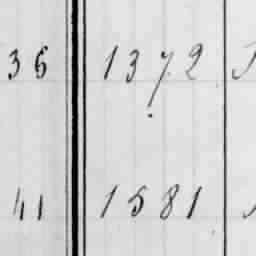 36 1372
41 1581